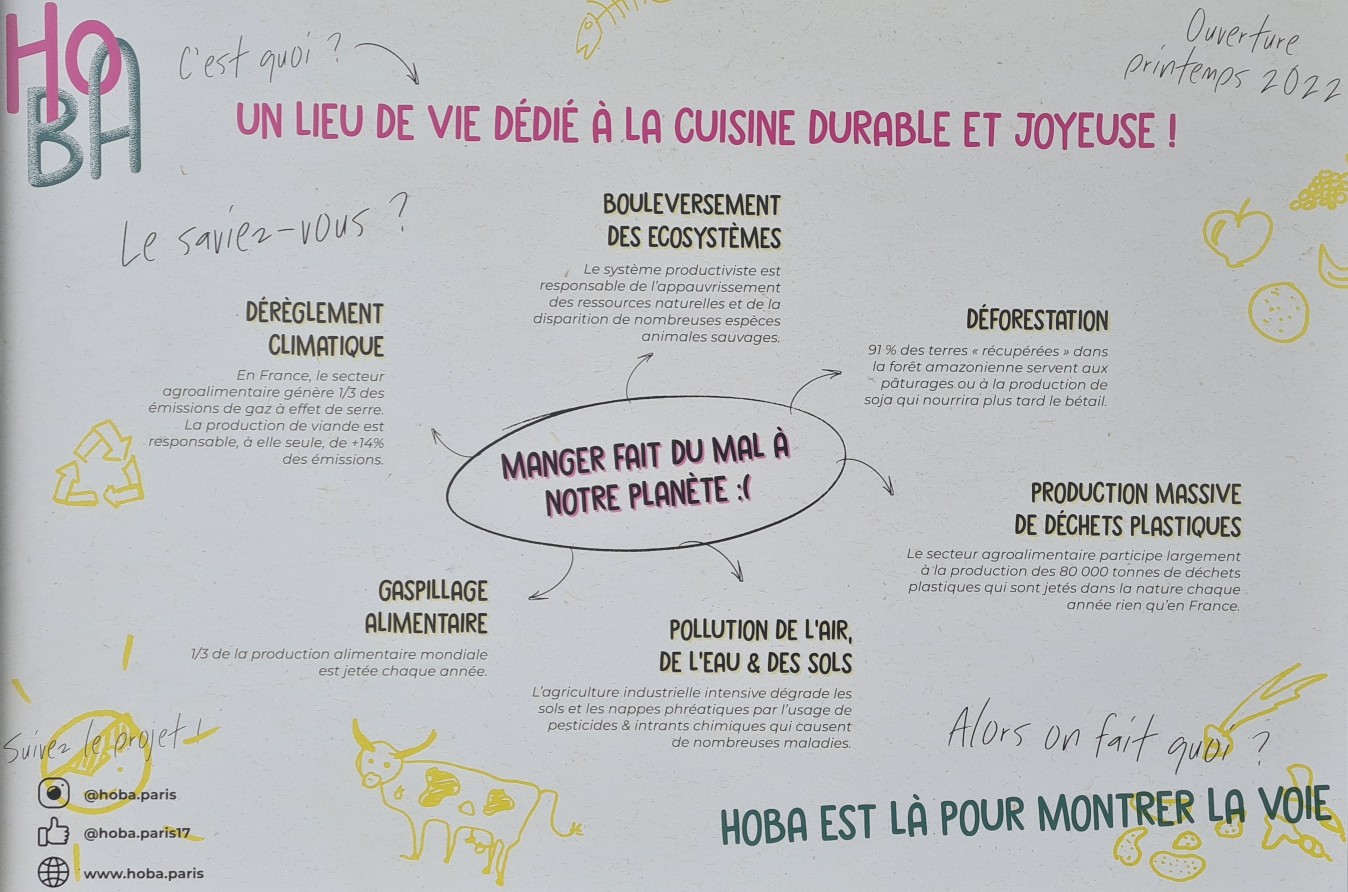 HO
BA
C'est quoi ?
Ouverture
printemps 2022
UN LIEU DE VIE DÉDIÉ À LA CUISINE DURABLE ET JOYEUSE !
Le saviez-vous ?
BOULEVERSEMENT
DES ECOSYSTÈMES
Le système productiviste est
responsable de l'appauvrissement
des ressources naturelles et de la
disparition de nombreuses espèces
animales sauvages.
DÉRÈGLEMENT
CLIMATIQUE
En France, le secteur
agroalimentaire génère 1/3 des
émissions de gaz à effet de serre.
La production de viande est
responsable, à elle seule, de +14%
des émissions.
DÉFORESTATION
91 % des terres « récupérées » dans
la forêt amazonienne servent aux
pâturages ou à la production de
soja qui nourrira plus tard le bétail.
MANGER FAIT DU MAL À
NOTRE PLANÈTE :(
PRODUCTION MASSIVE
DE DÉCHETS PLASTIQUES
Le secteur agroalimentaire participe largement
à la production des 80 000 tonnes de déchets
plastiques qui sont jetés dans la nature chaque
année rien qu'en France.
GASPILLAGE
ALIMENTAIRE
1/3 de la production alimentaire mondiale
est jetée chaque année.
POLLUTION DE L'AIR,
DE L'EAU & DES SOLS
L'agriculture industrielle intensive dégrade les
sols et les nappes phréatiques par l'usage de
pesticides & intrants chimiques qui causent
de nombreuses maladies.
Suivez le projet !
@hoba.paris
@hoba.paris17
www.hoba.paris
Alors on fait quoi ?
HOBA EST LÀ POUR MONTRER LA VOIE